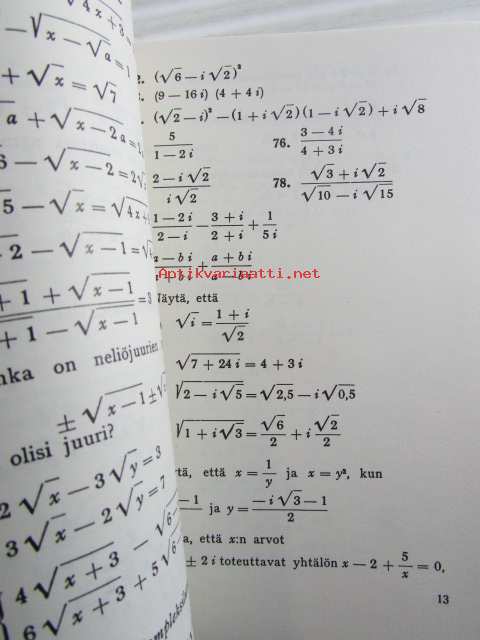 √4x+3 =
-√x-√a = 1
+ √x = √7
a + √x-2a =
6 - √x-2 = 2√
5 - √x = √4x+
2 - √x-1 = √
+1 + √x-1 = 3
+1 - √x-1
nka on neliöjuurien
± √x-1 ±
olisi juuri?
2√x - 3√y = 3
3√x - 2√y = 7
4√x+3 - √6-
6√x+3 + 5√6-
(√6 - i√2)²
(9 - 16 i) (4 + 4 i)
(√2 - i)² - (1 + i√2)(1 - i√2) + i√8
5/(1 - 2 i) 76. (3 - 4 i)/(4 + 3 i)
(2 - i√2)/(i√2) 78. (√3 + i√2)/(√10 - i√15)
(1 - 2 i)/(2 - i) - (3 + i)/(2 + i) + 1/(5 i)
(a - b i)/(a + b i) + (a + b i)/(a - b i)
Antikvariaatti.net
Näytä, että
√i = (1 + i)/√2
√7 + 24 i = 4 + 3 i
√2 - i√5 = √2,5 - i√0,5
√1 + i√3 = √6/2 + i √2/2
että x = 1/y ja x = y², kun
- 1 ja y = (-i√3 - 1)/2
että x:n arvot
± 2 i toteuttavat yhtälön x - 2 + 5/x = 0,
13